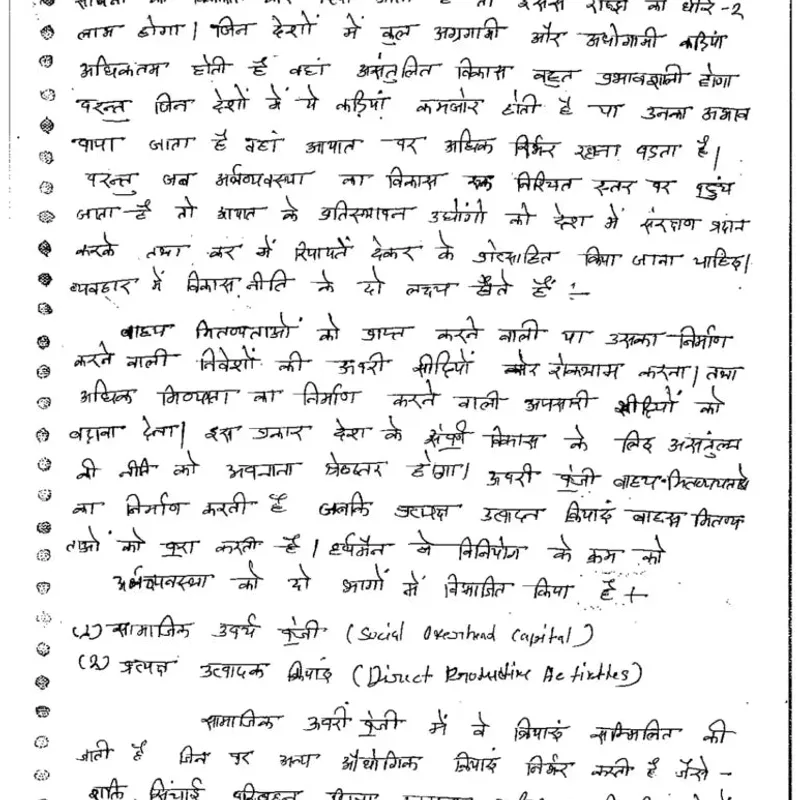 लाभ होगा। जिन देशों में कुल अग्रगामी और अधोगामी कड़ियां
अधिकतम होती हैं वहां असंतुलित विकास बहुत प्रभावशाली होगा
परन्तु जिन देशों में ये कड़ियां कमजोर होती है या उनका अभाव
पाया जाता है वहां आयात पर अधिक निर्भर रहना पड़ता है।
परन्तु जब अर्थव्यवस्था का विकास एक निश्चित स्तर पर पहुंच
जाता है तो आयात के प्रतिस्थापन उद्योगो को देश में संरक्षण प्रदान
करके तथा कर में रियायतें देकर के प्रोत्साहित किया जाना चाहिए।
व्यवहार में विकास नीति के दो लक्ष्य होते हैं :-
बाह्य मितव्ययताओं को प्राप्त करने वाली या उसका निर्माण
करने वाली निवेशों की ऊपरी सीढ़ियों और रोकथाम करना। तथा
अधिक का निर्माण करने वाली अपसारी सीढ़ियों को
बढ़ावा देना। इस प्रकार देश के विकास के लिए असंतुलन
की नीति को अपनाना श्रेष्ठतर होगा। ऊपरी पूंजी बाह्य
का निर्माण करती है जबकि प्रत्यक्ष उत्पादन क्रियाएं बाह्य मितव्य
ताओं को पूरा करती है। विनियोग के क्रम को
अर्थव्यवस्था को दो भागों में विभाजित किया है :-
(1) सामाजिक उपरि पूंजी (Social Overhead Capital)
(2) प्रत्यक्ष उत्पादक क्रियाएं (Direct Productive Activities)
सामाजिक ऊपरी पूंजी में वे क्रियाएं सम्मिलित की
जाती है जिन पर अन्य औद्योगिक क्रियाएं निर्भर करती है जैसे -
शक्ति, सिंचाई, परिवहन